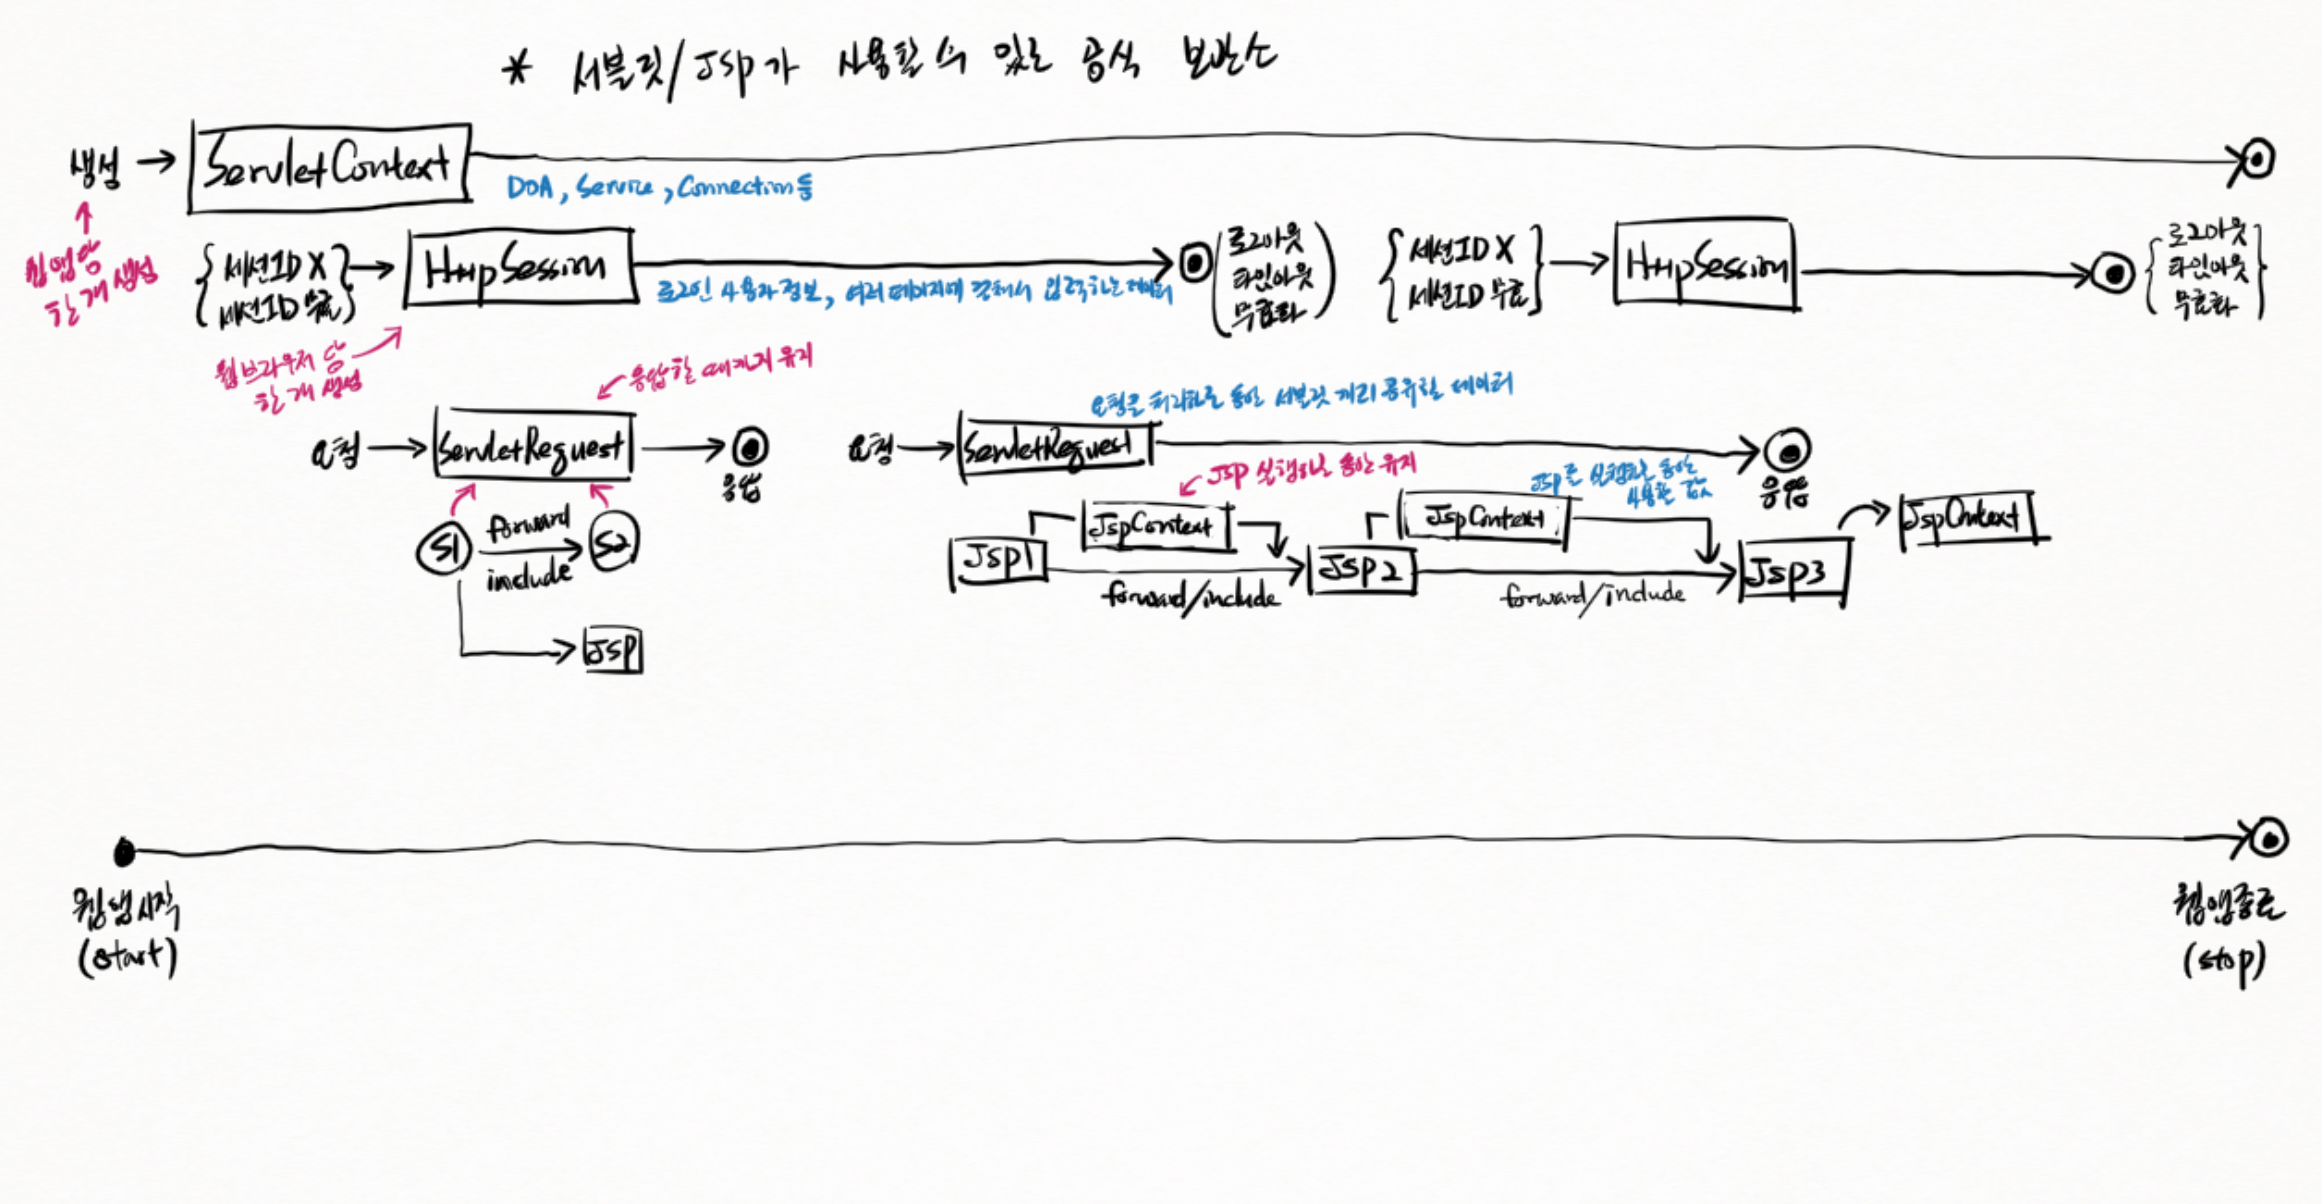 * 서블릿/JSP가 사용할 수 있는 공식 보관소
생성 → ServletContext
DOA, Service, Connection 등
웹앱당
한 개 생성
세션ID X
세션ID 무효
HttpSession
로그인 사용자 정보, 여러 페이지에 걸쳐서 입력하는 데이터
로그아웃
타임아웃
무효화
세션ID X
세션ID 무효
HttpSession
로그아웃
타임아웃
무효화
웹브라우저 당
한 개 생성
응답할 때까지 유지
요청 → ServletRequest
응답
S1
forward
include
S2
JSP
요청을 처리하는 동안 서블릿 끼리 공유할 데이터
요청 → ServletRequest
응답
JSP 실행하는 동안 유지
JSP를 실행하는 동안
사용할 값
JspContext
JspContext
JspContext
JSP1
forward/include
JSP2
forward/include
JSP3
웹앱시작
(start)
웹앱종료
(stop)